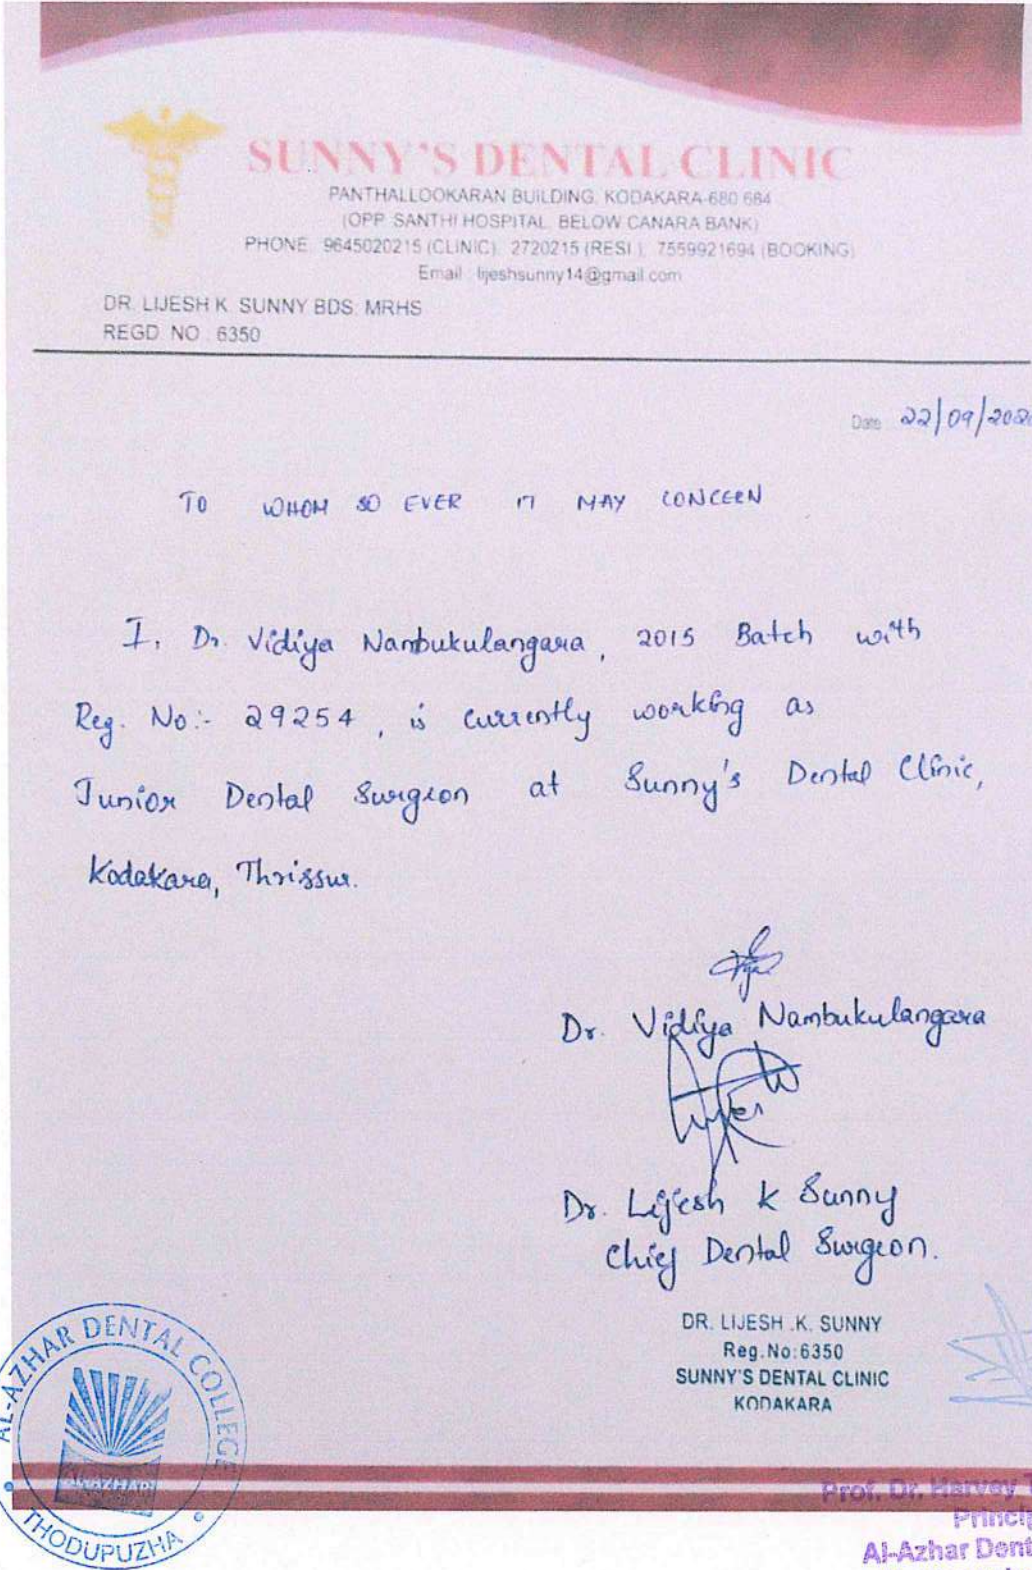 SUNNY'S DENTAL CLINIC
PANTHALLOOKARAN BUILDING, KODAKARA-680 684
(OPP. SANTHI HOSPITAL, BELOW CANARA BANK)
PHONE : 9645020215 (CLINIC), 2720215 (RESI.), 7559921694 (BOOKING)
Email : lijeshsunny14@gmail.com
DR. LIJESH K. SUNNY BDS. MRHS
REGD. NO : 6350
Date 22/09/202
TO WHOM SO EVER IT MAY CONCERN
I, Dr. Vidiya Nambukulangara, 2015 Batch with
Reg. No:- 29254, is currently working as
Junior Dental Surgeon at Sunny's Dental Clinic,
Kodakara, Thrissur.
Dr. Vidiya Nambukulangara
Dr. Lijesh K Sunny
Chief Dental Surgeon.
DR. LIJESH .K. SUNNY
Reg.No:6350
SUNNY'S DENTAL CLINIC
KODAKARA
AL-AZHAR DENTAL COLLEGE
AL-AZHAR
THODUPUZHA
Prof. Dr. Harvey
Princi
Al-Azhar Dent